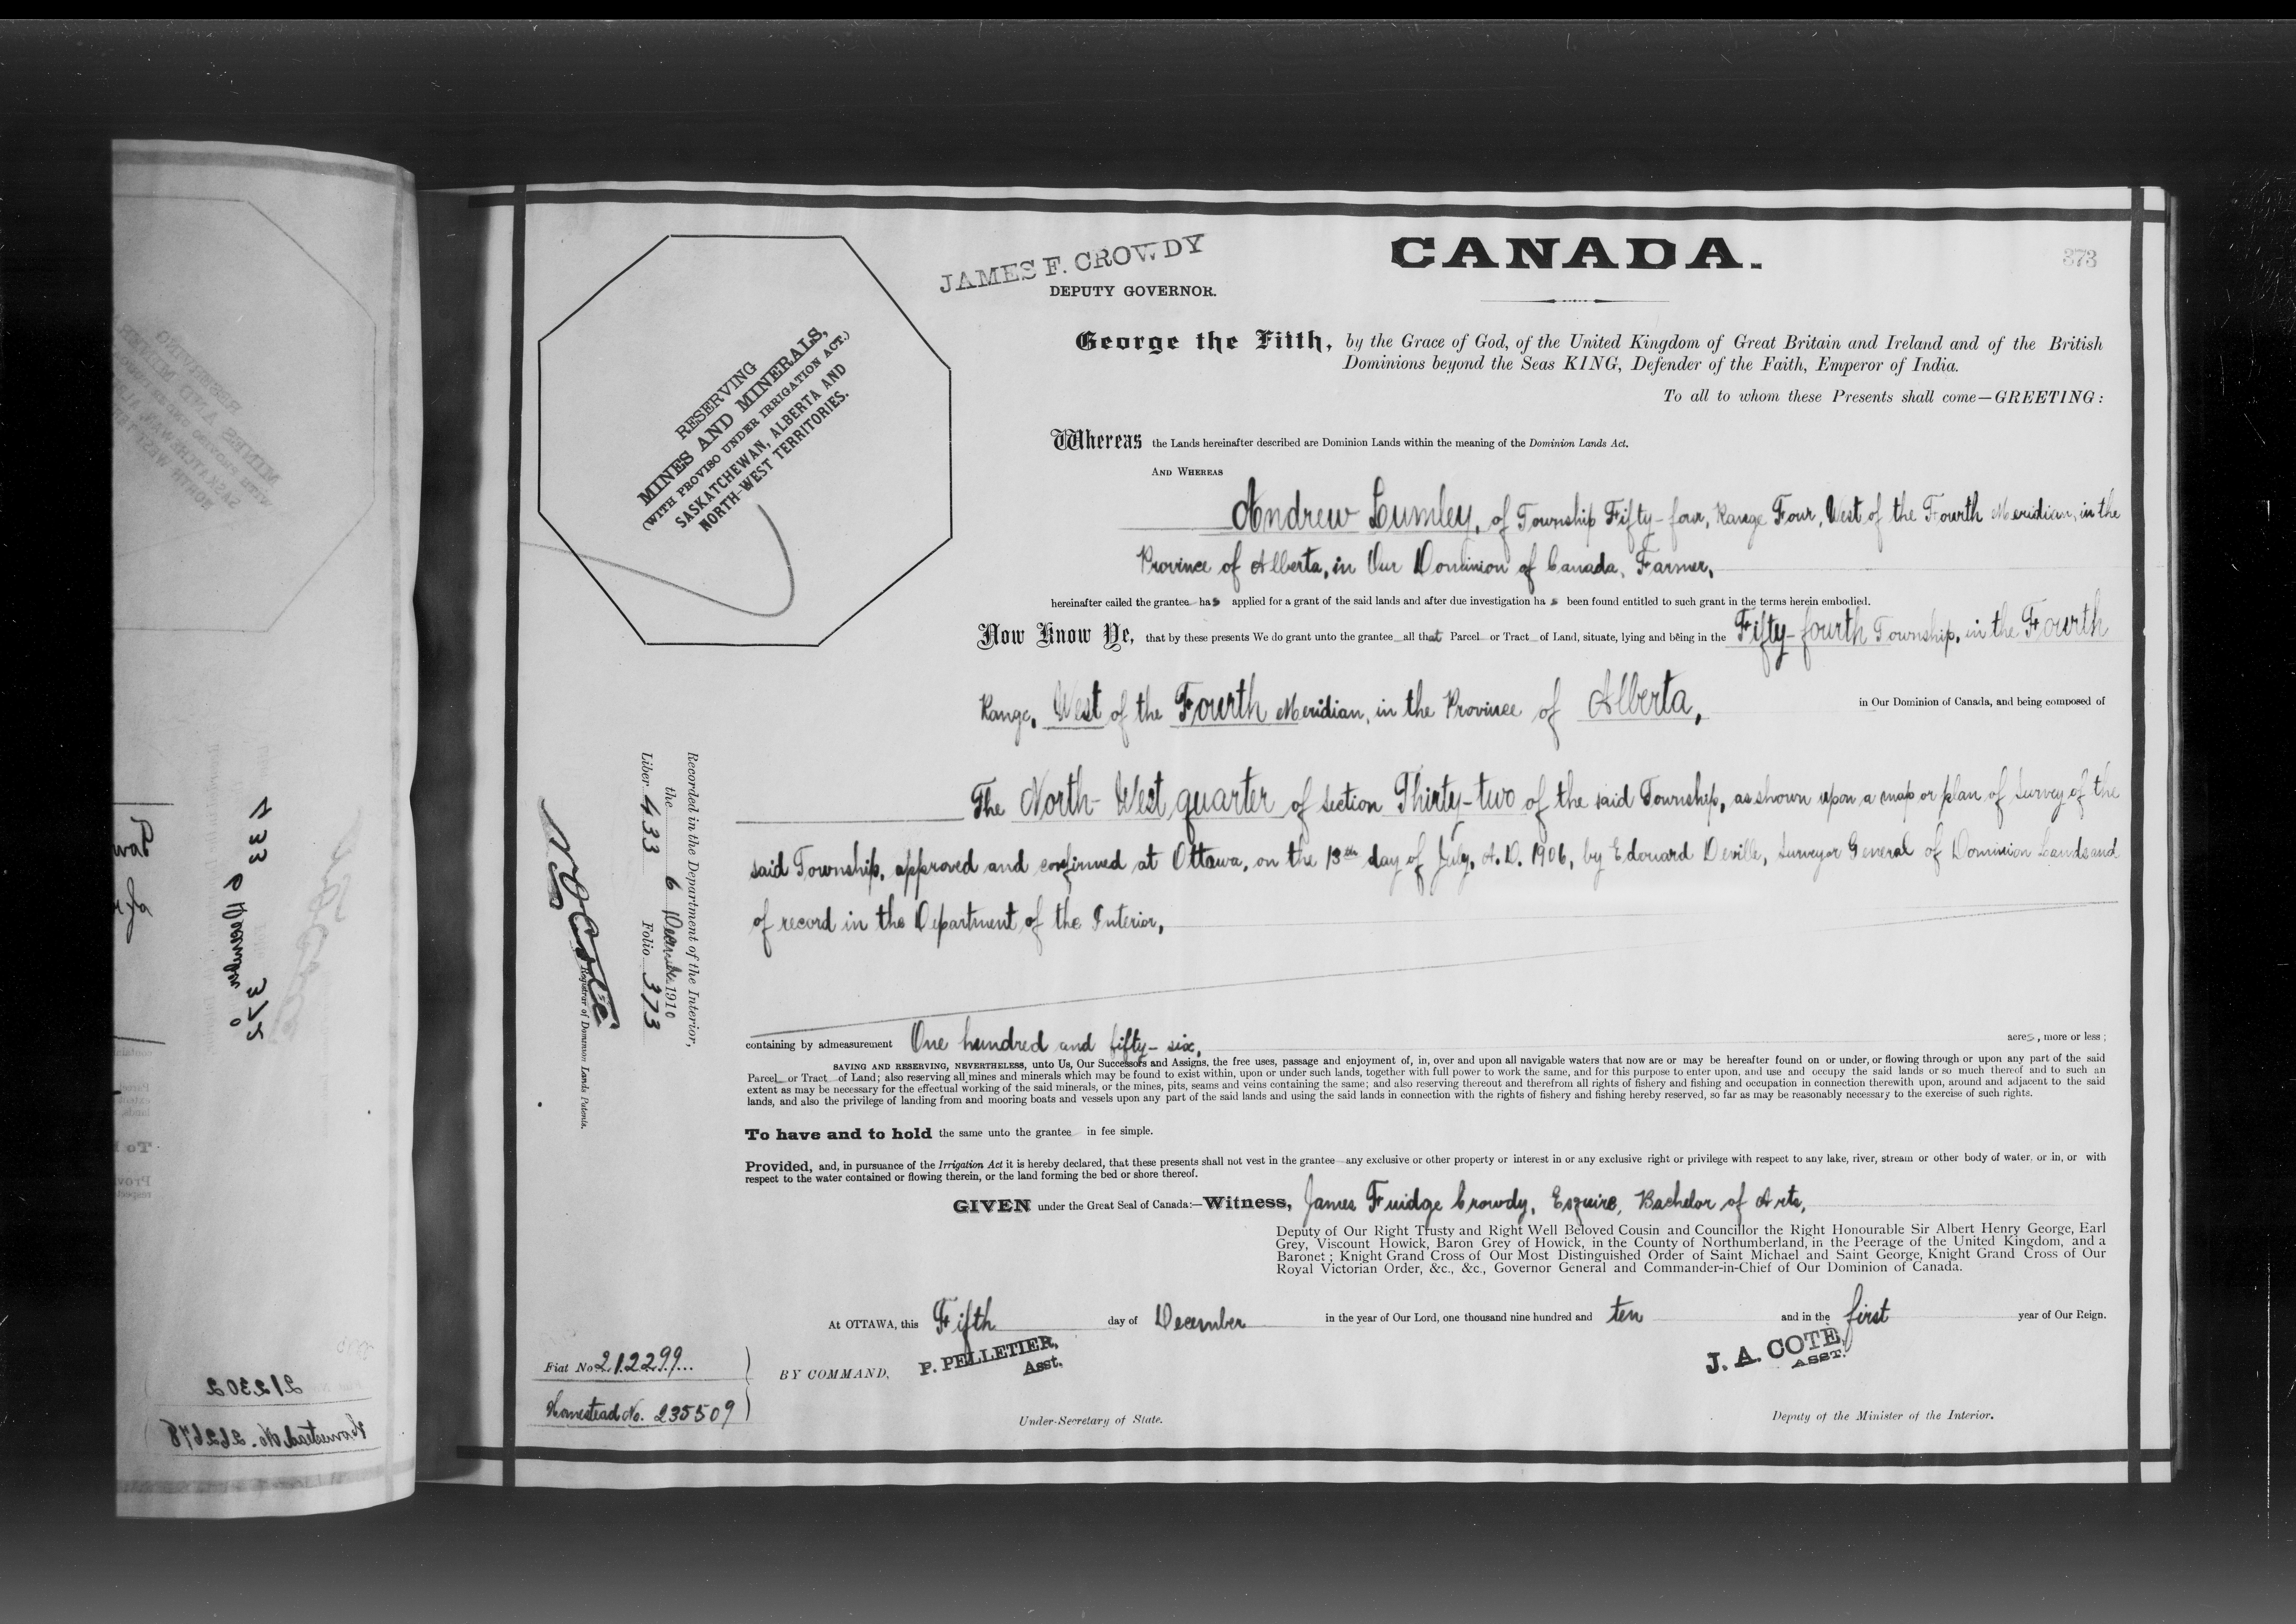 JAMES F. CROWDY
DEPUTY GOVERNOR.
CANADA.
373
RESERVING
MINES AND MINERALS,
(WITH PROVISO UNDER IRRIGATION ACT.)
SASKATCHEWAN, ALBERTA AND
NORTH-WEST TERRITORIES.
George the Fifth, by the Grace of God, of the United Kingdom of Great Britain and Ireland and of the British
Dominions beyond the Seas KING, Defender of the Faith, Emperor of India.
To all to whom these Presents shall come—GREETING:
Whereas the Lands hereinafter described are Dominion Lands within the meaning of the Dominion Lands Act.
AND WHEREAS
Andrew Lumley, of Township Fifty-four, Range Four, West of the Fourth Meridian, in the
Province of Alberta, in Our Dominion of Canada, Farmer,
hereinafter called the grantee has applied for a grant of the said lands and after due investigation has been found entitled to such grant in the terms herein embodied.
Now Know Ye, that by these presents We do grant unto the grantee all that Parcel or Tract of Land, situate, lying and being in the Fifty-fourth Township, in the Fourth
Range, West of the Fourth Meridian, in the Province of Alberta, in Our Dominion of Canada, and being composed of
The North-West quarter of section Thirty-two of the said Township, as shown upon a map or plan of Survey of the
said Township, approved and confirmed at Ottawa, on the 13th day of July, A.D. 1906, by Edouard Deville, Surveyor General of Dominion Lands and
of record in the Department of the Interior,
Recorded in the Department of the Interior,
the 6 December 1910
Liber 433 Folio 373
Registrar of Dominion Lands Patents.
containing by admeasurement One hundred and fifty-six, acres, more or less;
SAVING AND RESERVING, NEVERTHELESS, unto Us, Our Successors and Assigns, the free uses, passage and enjoyment of, in, over and upon all navigable waters that now are or may be hereafter found on or under, or flowing through or upon any part of the said
Parcel or Tract of Land; also reserving all mines and minerals which may be found to exist within, upon or under such lands, together with full power to work the same, and for this purpose to enter upon, and use and occupy the said lands or so much thereof and to such an
extent as may be necessary for the effectual working of the said minerals, or the mines, pits, seams and veins containing the same; and also reserving thereout and therefrom all rights of fishery and fishing and occupation in connection therewith upon, around and adjacent to the said
lands, and also the privilege of landing from and mooring boats and vessels upon any part of the said lands and using the said lands in connection with the rights of fishery and fishing hereby reserved, so far as may be reasonably necessary to the exercise of such rights.
To have and to hold the same unto the grantee in fee simple.
Provided, and, in pursuance of the Irrigation Act it is hereby declared, that these presents shall not vest in the grantee any exclusive or other property or interest in or any exclusive right or privilege with respect to any lake, river, stream or other body of water, or in, or with
respect to the water contained or flowing therein, or the land forming the bed or shore thereof.
GIVEN under the Great Seal of Canada:—Witness, James Fuidge Crowdy, Esquire, Bachelor of Arts,
Deputy of Our Right Trusty and Right Well Beloved Cousin and Councillor the Right Honourable Sir Albert Henry George, Earl
Grey, Viscount Howick, Baron Grey of Howick, in the County of Northumberland, in the Peerage of the United Kingdom, and a
Baronet; Knight Grand Cross of Our Most Distinguished Order of Saint Michael and Saint George, Knight Grand Cross of Our
Royal Victorian Order, &c., &c., Governor General and Commander-in-Chief of Our Dominion of Canada.
At OTTAWA, this Fifth day of December in the year of Our Lord, one thousand nine hundred and ten and in the first year of Our Reign.
Fiat No 212299
Homestead No. 235509
BY COMMAND,
P. PELLETIER,
Asst.
Under-Secretary of State.
J. A. COTE,
ASST.
Deputy of the Minister of the Interior.
212302
Homestead No. 262678